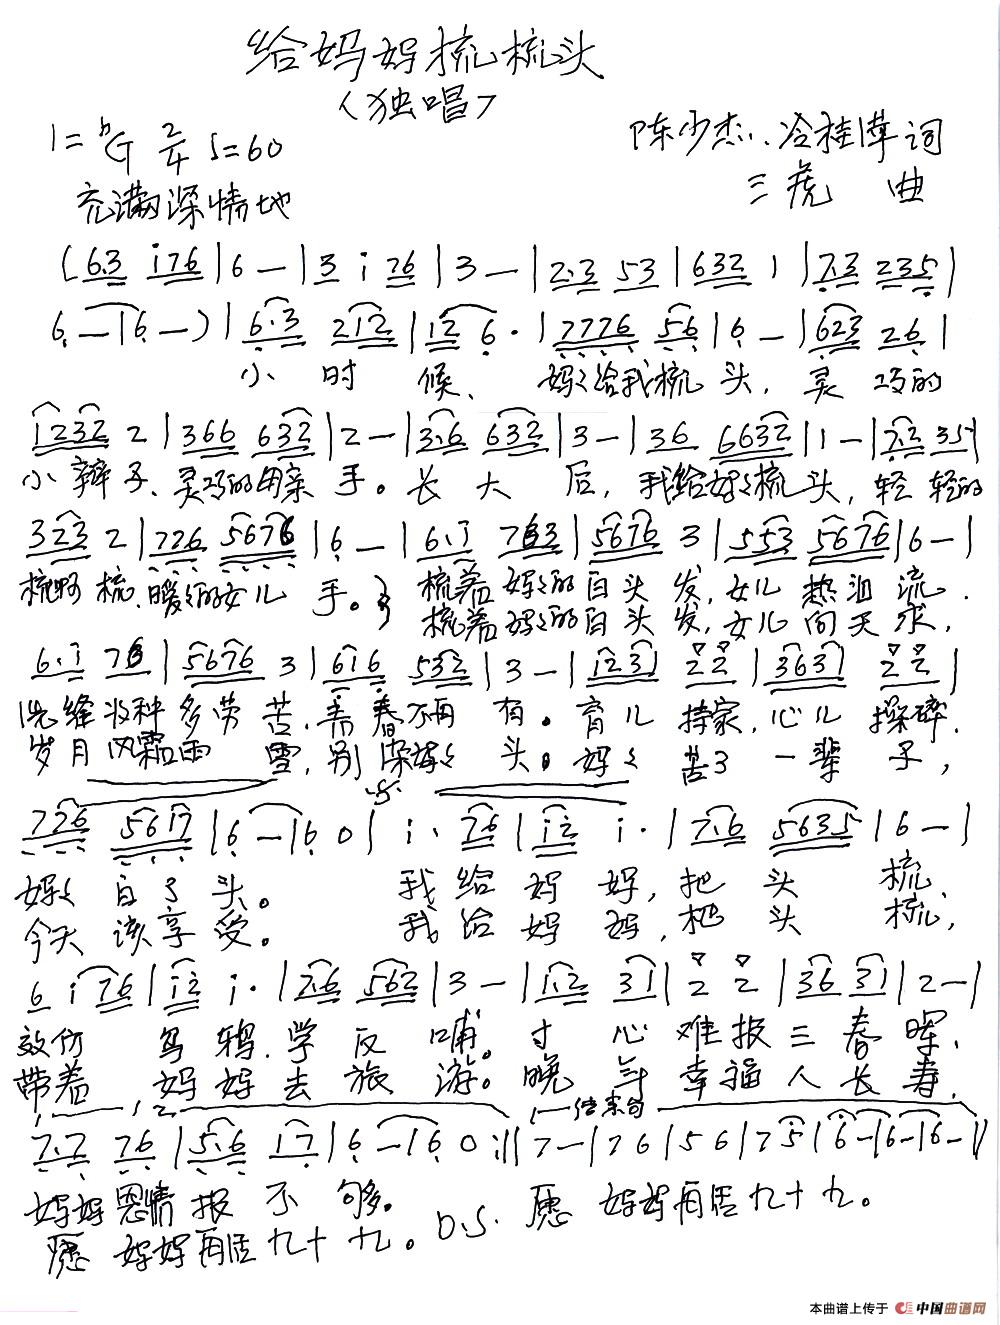 给妈妈梳梳头
(独唱)
1=bG 2/4 ♩=60
陈少杰、冷桂萍 词
充满深情地
三虎 曲
(6.3 i76|6 —|3 i 76|3 —|2.3 53|632 1|7.3 235|
6 —|6 —)|6.3 212|12 6.|7776 56|6 —|623 26|
小 时 候、 妈妈给我梳 头, 灵 巧的
1232 2|366 632|2 —|3.6 632|3 —|36 6632|1 —|7.2 35|
小 辫 子、灵巧的母亲 手。长 大 后, 我给妈妈梳 头, 轻 轻的
323 2|776 5676|6 —|6.i 763|5676 3|553 5676|6 —|
梳啊 梳、暖暖的女儿 手。 梳着 妈妈的白头 发, 女儿 热泪 流.
梳着 妈妈的白头 发, 女儿 向天 求,
6.i 763|5676 3|616 532|3 —|1231 22|3631 22|
洗缝 多劳 苦, 青春不再 有。育儿 持家, 心儿 操碎.
岁月风霜雨 雪, 别染妈妈 头。妈妈 苦了 一辈 子,
726 5617|6 —|6 0|i. 76|i2 i.|7.6 5635|6 —|
妈妈 白了 头。 我 给 妈 妈, 把 头 梳、
今天 该享 受。 我 给 妈 妈, 把 头 梳,
6 i 76|i2 i.|2.6 562|3 —|1.2 31|2 2|36 31|2 —|
效仿 乌 鸦. 学 反 哺。寸 心 难报 三 春 晖、
带着 妈 妈 去 旅 游。晚 年 幸福 人 长 寿,
1. 2. 结束句
7.7 76|5.6 17|6 —|6 0:‖7 —|7 6|5 6|7 5|6 —|6 —|6 —‖
妈妈 恩情 报 不 够。 D.S. 愿 妈妈再活九十九。
愿 妈妈再活 九十 九。
本曲谱上传于 中国曲谱网